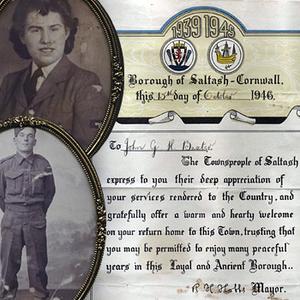 1939 1945
Borough of Saltash-Cornwall,
this 15th day of October 1946.
To John G R
The Townspeople of Saltash
express to you their deep appreciation of
your services rendered to the Country, and
gratefully offer a warm and hearty welcome
on your return home to this Town, trusting that
you may be permitted to enjoy many peaceful
years in this Loyal and Ancient Borough..
Mayor.